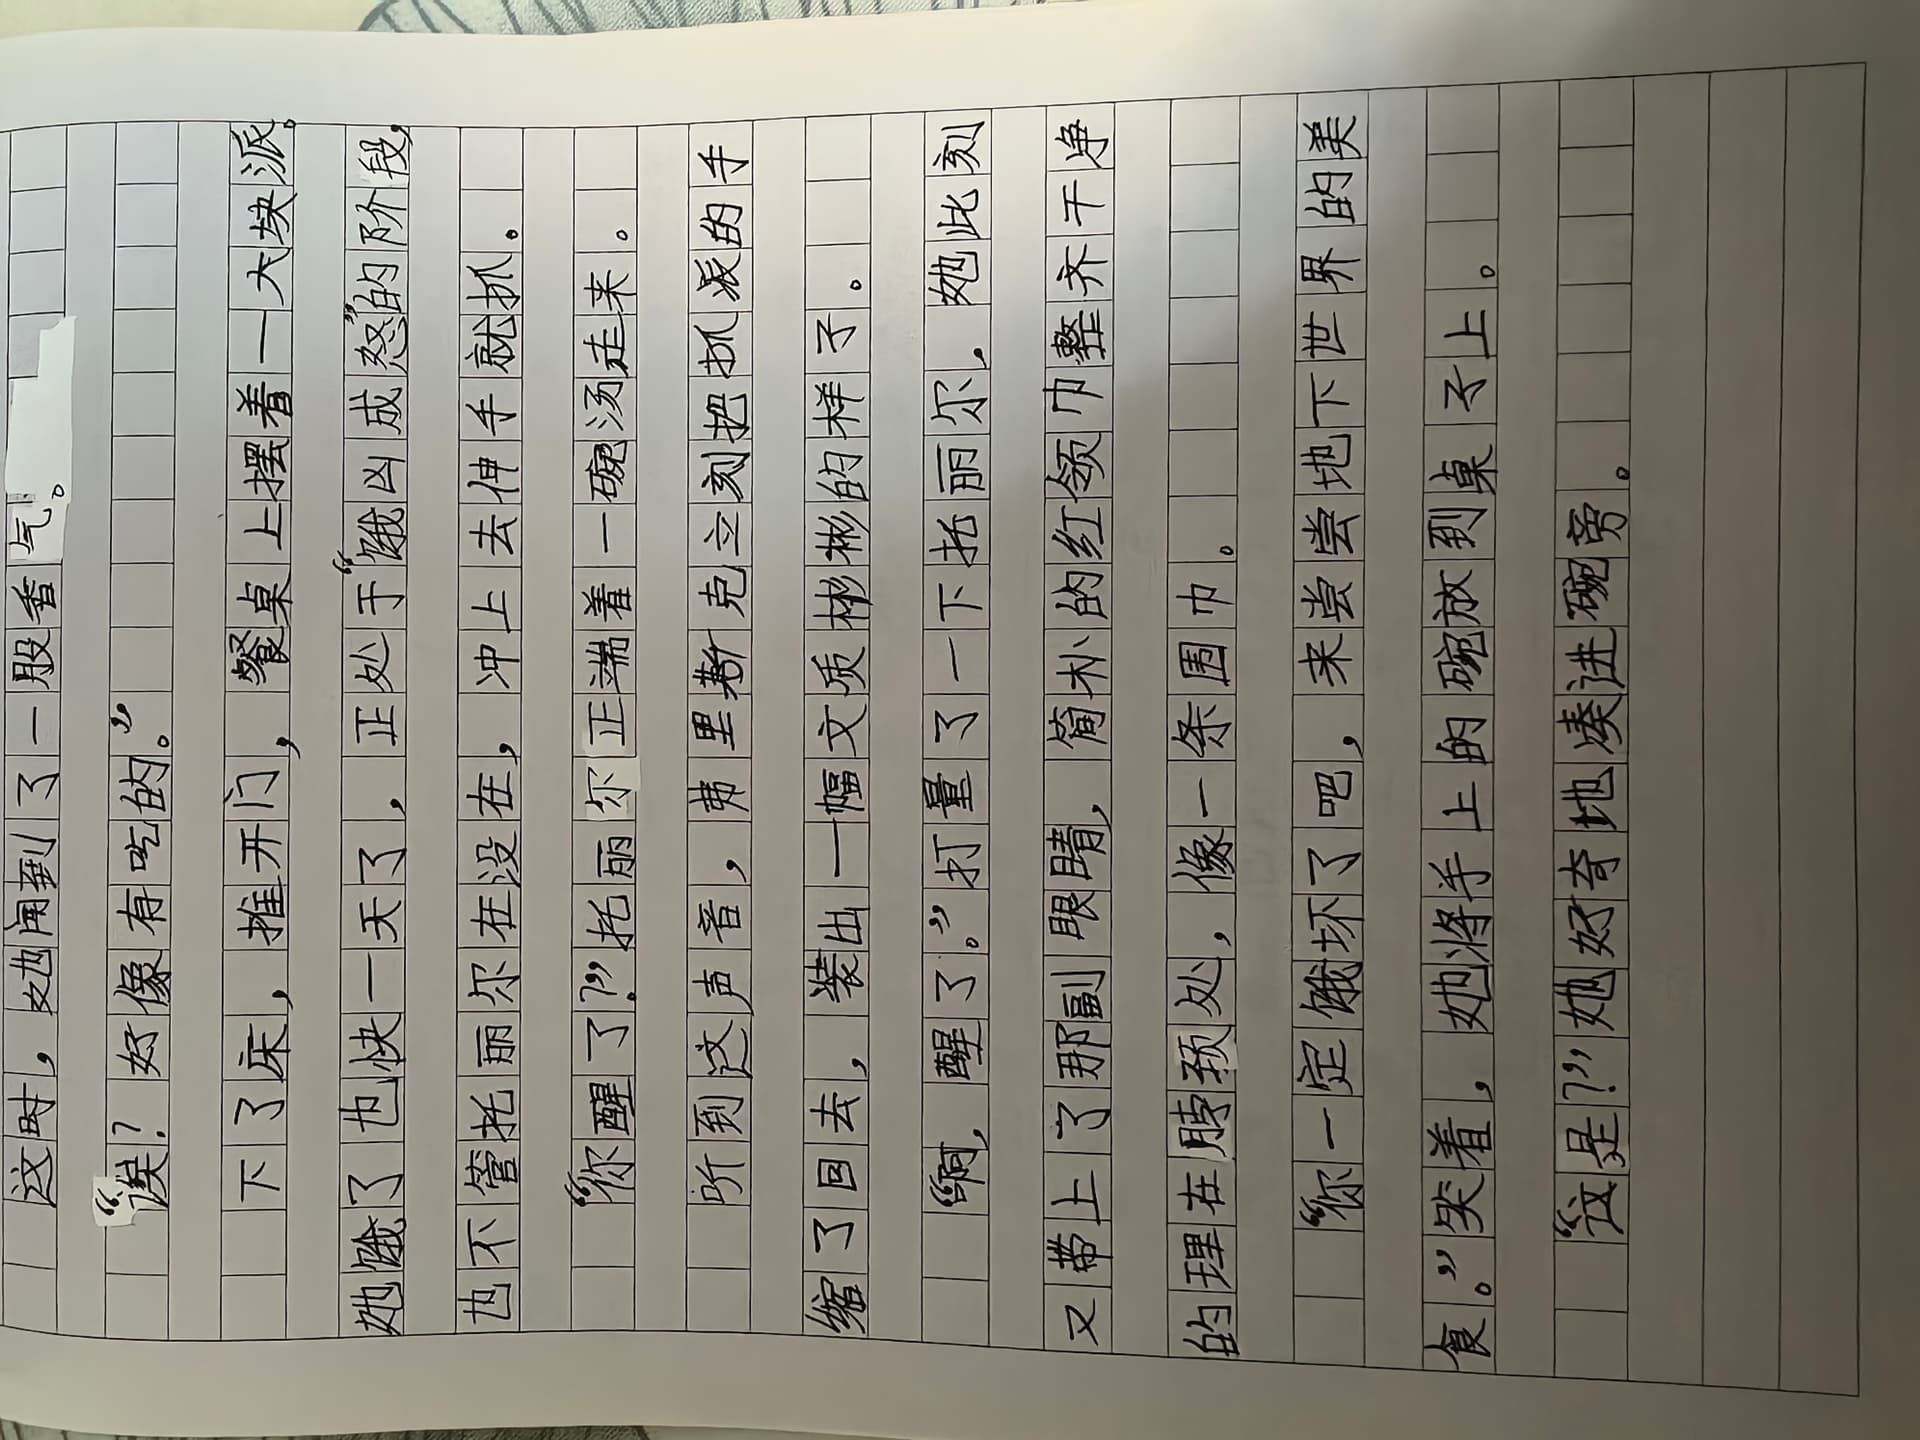 这时，她闻到了一股香气。
“诶？好像有吃的。”
下了床，推开门，餐桌上摆着一大块派。
她饿了也快一天了，正处于“饿凶成怒”的阶段，
也不管托丽尔在没在，冲上去伸手就抓。
“你醒了？”托丽尔正端着一碗汤走来。
所到这声音，弗里斯克立刻把抓派的手
缩了回去，装出一幅文质彬彬的样子。
“啊，醒了。”打量了一下托丽尔，她此刻
又带上了那副眼睛，简朴的红领巾整齐干净
的理在脖颈处，像一条围巾。
“你一定饿坏了吧，来尝尝地下世界的美
食。”笑着，她将手上的碗放到桌子上。
“这是？”她好奇地凑进碗旁。